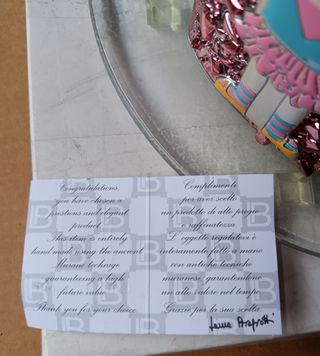 Congratulations,
you have chosen a
prestious and elegant
product
This item is entirely
hand made using the ancient
Murano technige
guaranteeing a high
future value
Thank you for your choice
Complimenti
per aver scelto
un prodotto di alto pregio
e raffinatezza
L'oggetto regalatovi è
interamente fatto a mano
con antiche tecniche
muranesi, garantendone
un alto valore nel tempo
Grazie per la sua scelta